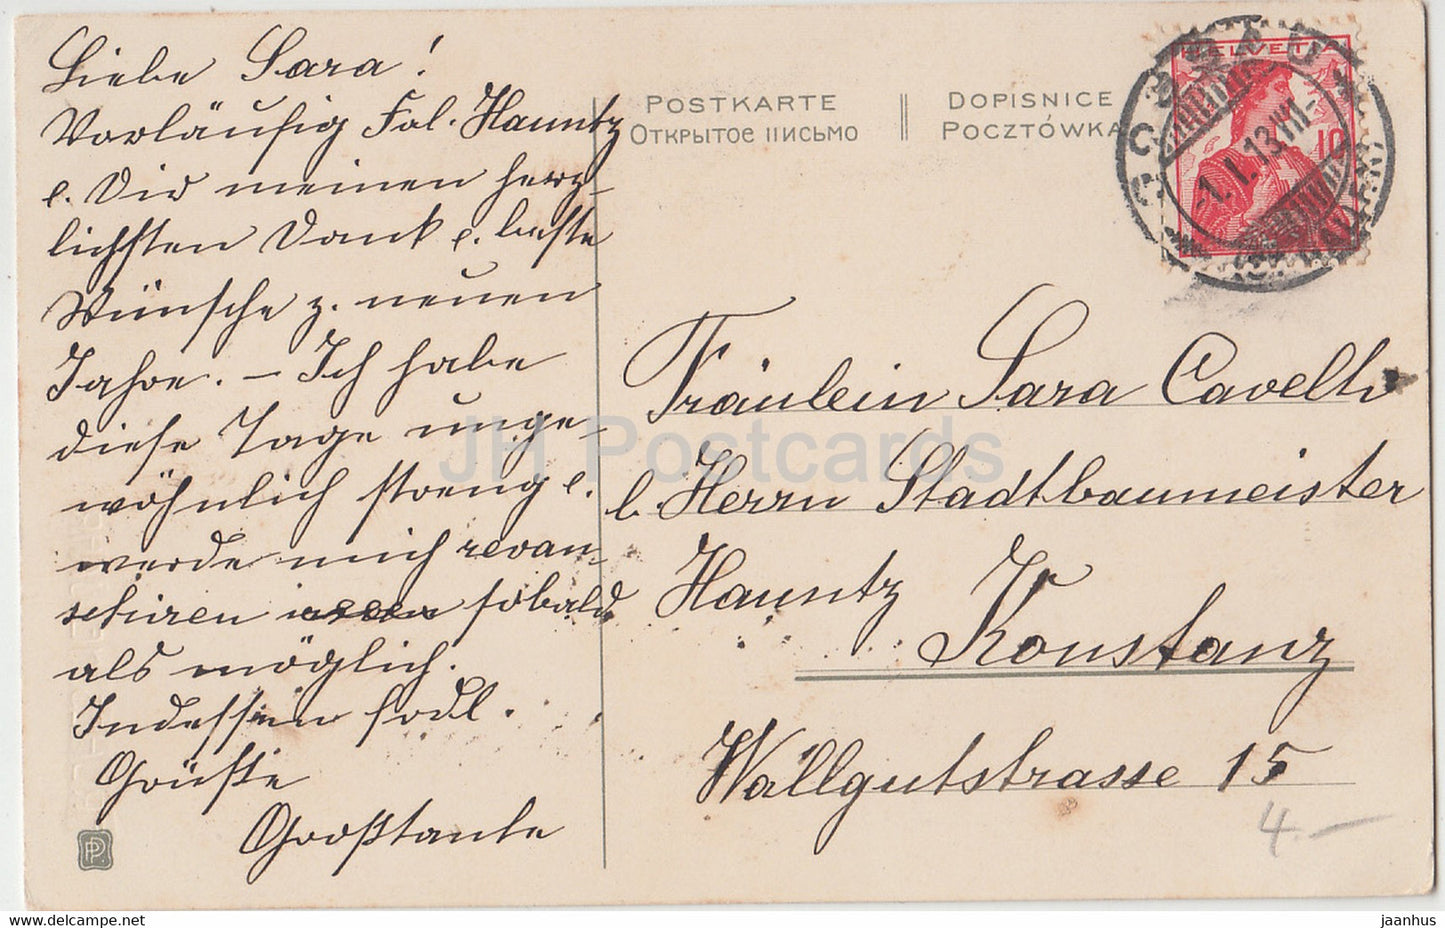 Liebe Sara!
Vorläufig Frl. Hauntz
e. Dir meinen herz-
lichsten Dank e. beste
Wünsche z. neuen
Jahre. – Ich habe
diese Tage unge-
wöhnlich streng e.
werde mich revan-
schiren sobald
als möglich.
Indessen frdl.
Grüße
Großtante
POSTKARTE
ОТКРЫТОЕ ПИСЬМО
DOPISNICE
POCZTÓWKA
HELVETIA
10
GOSSAU
-1.I.13.VII-
Fräulein Sara Cavelti
b. Herrn Stadtbaumeister
Hauntz Konstanz
Wallgutstrasse 15
4.–
PP
JH Postcards
jaanhus-postcards.com